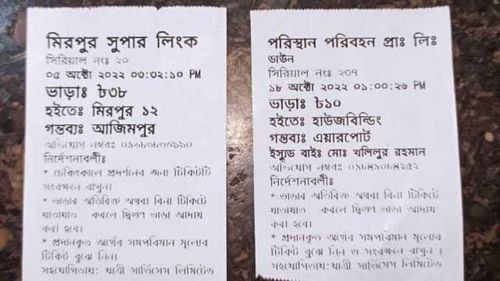 মিরপুর সুপার লিংক
সিরিয়াল নংঃ ২০
০৫ অক্টো ২০২২ ০৩:০২:১০ PM
ভাড়াঃ ৳৩৮
হইতেঃ মিরপুর ১২
গন্তব্যঃ আজিমপুর
অভিযোগ নম্বরঃ
নির্দেশনাবলীঃ
* চেকিংকালে প্রদর্শনের জন্য টিকিটটি
সংরক্ষন রাখুন।
* ভাড়ার অতিরিক্ত অথবা বিনা টিকিটে
যাতায়াত করলে দ্বিগুণ ভাড়া আদায়
করা হবে।
* প্রদানকৃত অর্থের সমপরিমান মূল্যের
টিকিট বুঝে নিন।
সহযোগিতায়: যাত্রী সার্ভিসেস লিমিটেড
পরিস্থান পরিবহন প্রাঃ লিঃ
ডাউন
সিরিয়াল নংঃ ২৩৭
১৮ অক্টো ২০২২ ০১:০০:২৬ PM
ভাড়াঃ ৳১০
হইতেঃ হাউজবিল্ডিং
গন্তব্যঃ এয়ারপোর্ট
ইস্যুড বাইঃ মোঃ খলিলুর রহমান
অভিযোগ নম্বরঃ
নির্দেশনাবলীঃ
* ভাড়ার অতিরিক্ত অথবা বিনা টিকিটে
যাতায়াত করলে দ্বিগুণ ভাড়া আদায়
করা হবে।
* প্রদানকৃত অর্থের সমপরিমান মূল্যের
টিকিট বুঝে নিন ও সংরক্ষন রাখুন।
সহযোগিতায়: যাত্রী সার্ভিসেস লিমিটেড